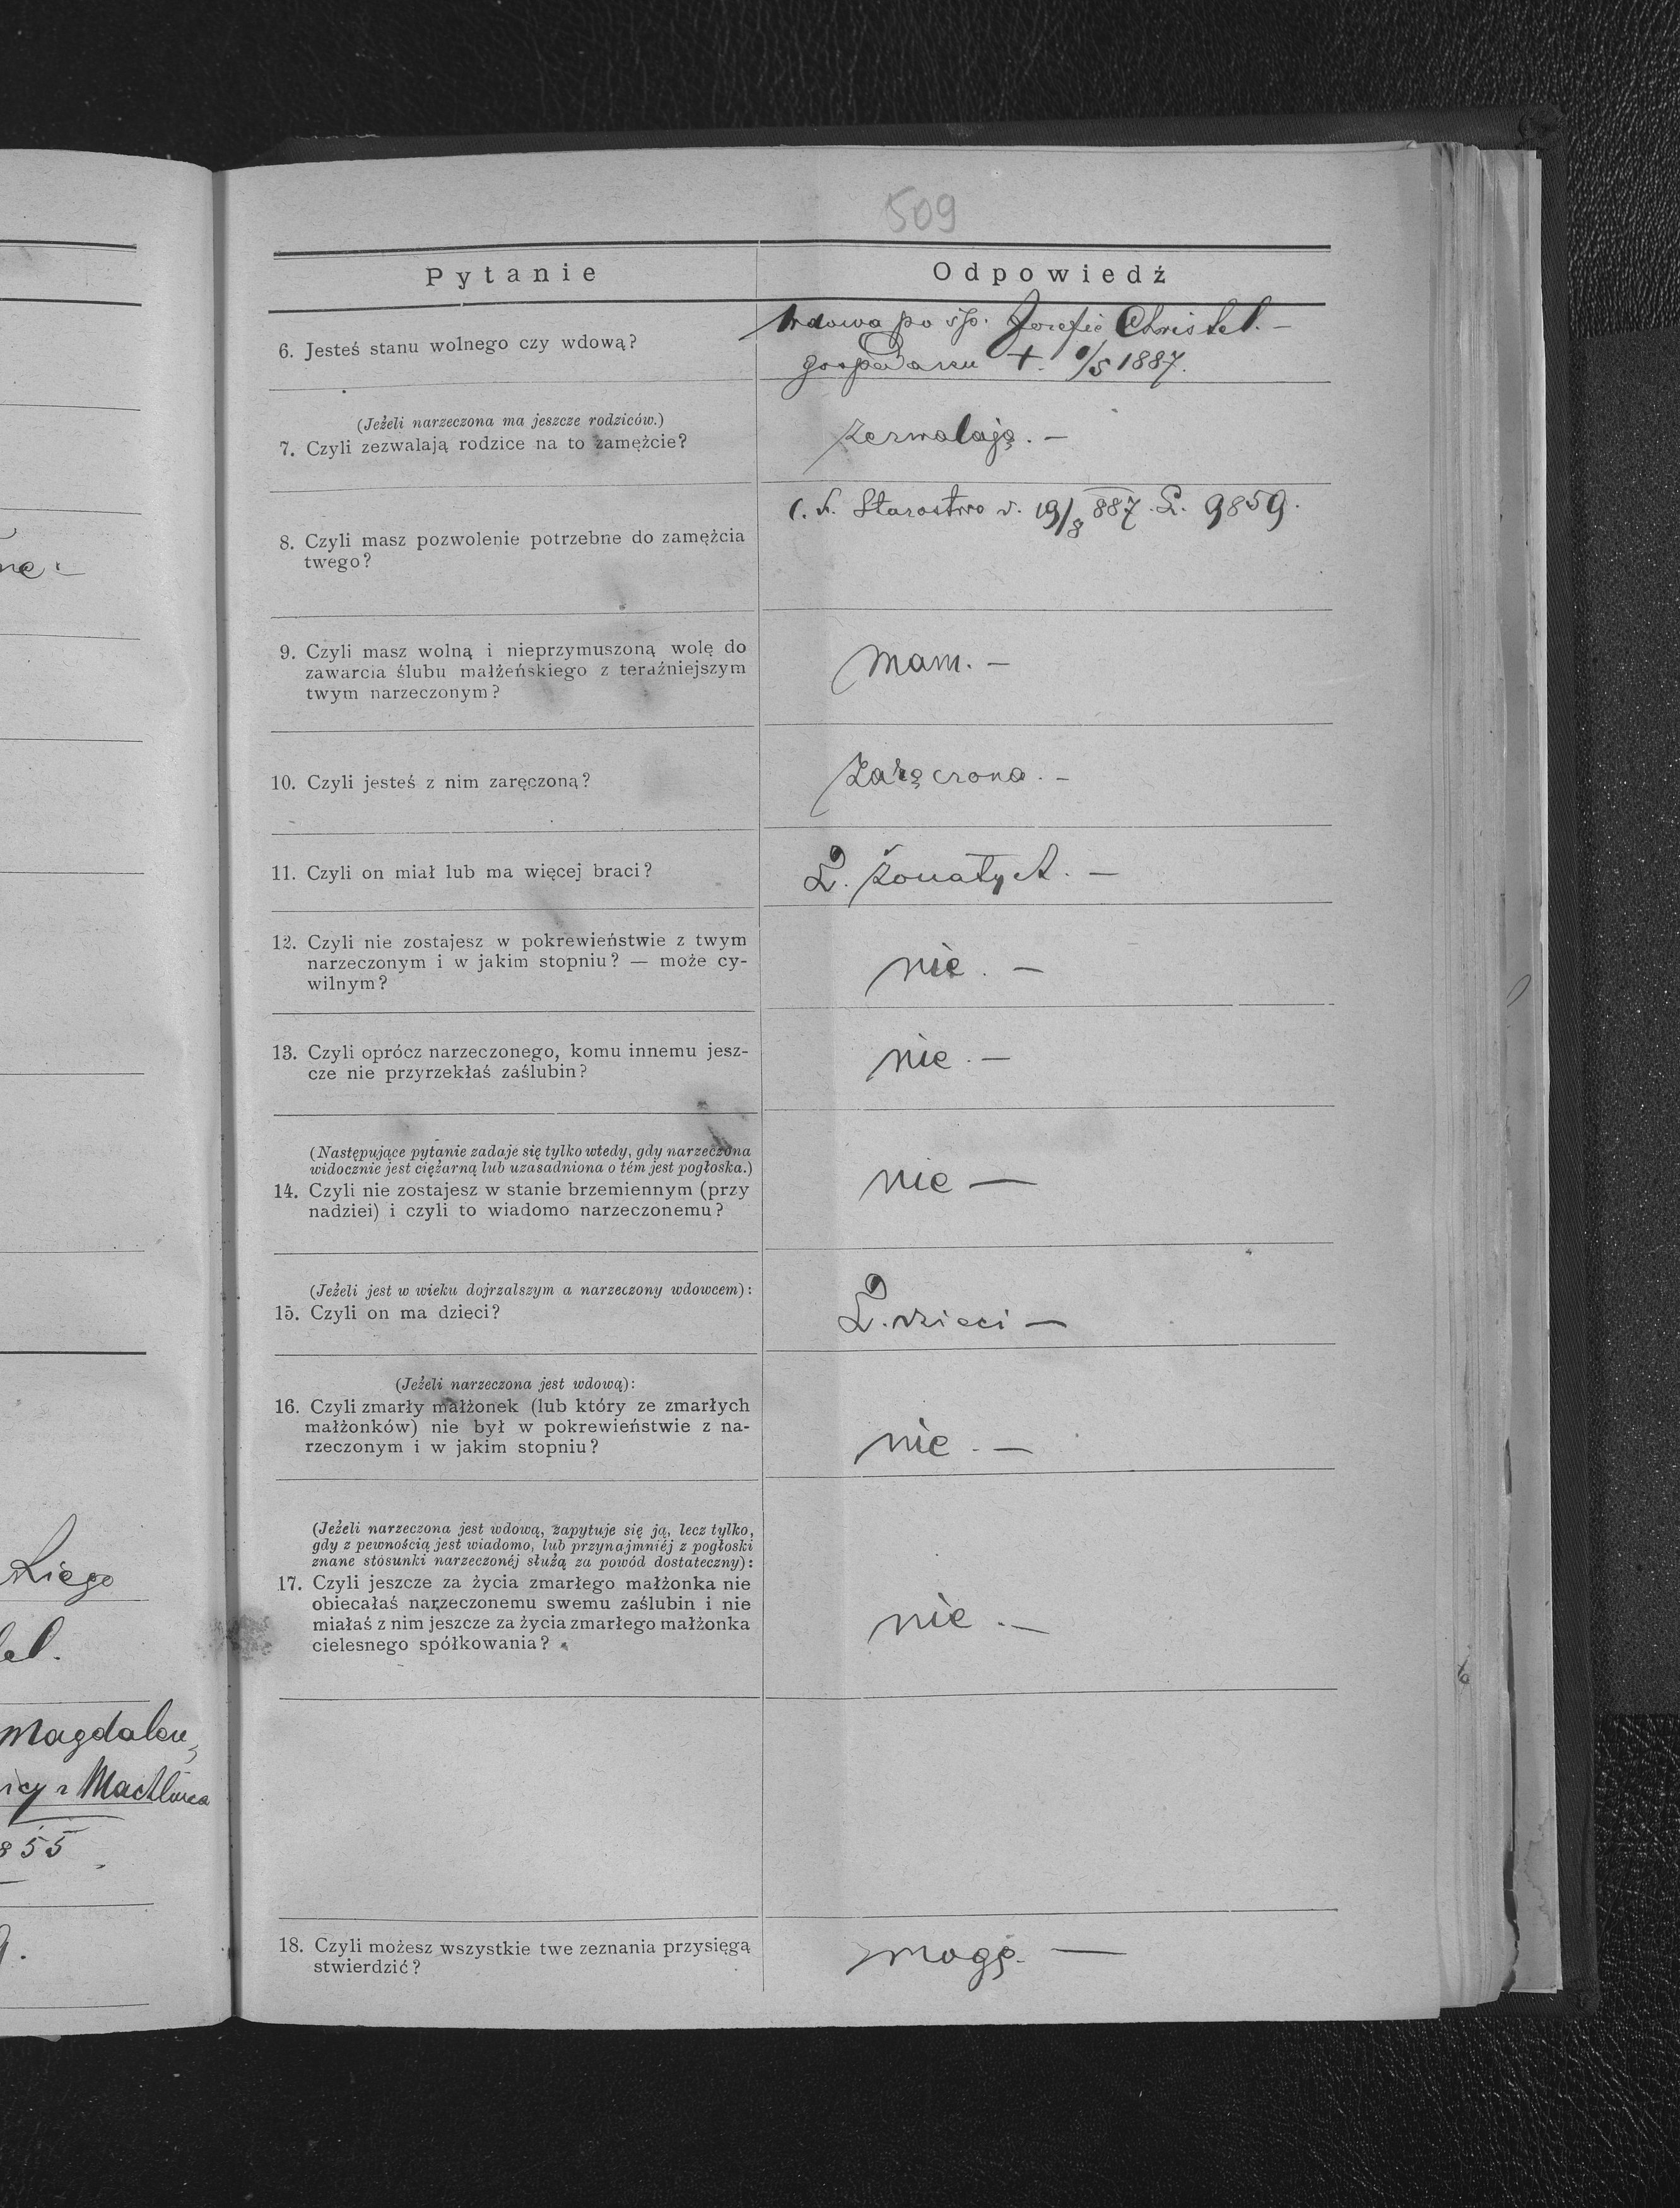 509
Pytanie
Odpowiedź
6. Jesteś stanu wolnego czy wdową?
Wdowa po śp. Józefie Christel. —
gospodarzu +. /5 1887.
(Jeżeli narzeczona ma jeszcze rodziców.)
7. Czyli zezwalają rodzice na to zamężcie?
zezwalają. —
8. Czyli masz pozwolenie potrzebne do zamężcia
twego?
C. k. Starostwo d. 19/8 887. L. 9859.
9. Czyli masz wolną i nieprzymuszoną wolę do
zawarcia ślubu małżeńskiego z teraźniejszym
twym narzeczonym?
mam. —
10. Czyli jesteś z nim zaręczoną?
zaręczona. —
11. Czyli on miał lub ma więcej braci?
2. żonatych. —
12. Czyli nie zostajesz w pokrewieństwie z twym
narzeczonym i w jakim stopniu? — może cy-
wilnym?
nie. —
13. Czyli oprócz narzeczonego, komu innemu jesz-
cze nie przyrzekłaś zaślubin?
nie. —
(Następujące pytanie zadaje się tylko wtedy, gdy narzeczona
widocznie jest ciężarną lub uzasadniona o tém jest pogłoska.)
14. Czyli nie zostajesz w stanie brzemiennym (przy
nadziei) i czyli to wiadomo narzeczonemu?
nie —
(Jeżeli jest w wieku dojrzalszym a narzeczony wdowcem):
15. Czyli on ma dzieci?
2. dzieci —
(Jeżeli narzeczona jest wdową):
16. Czyli zmarły małżonek (lub który ze zmarłych
małżonków) nie był w pokrewieństwie z na-
rzeczonym i w jakim stopniu?
nie. —
(Jeżeli narzeczona jest wdową, zapytuje się ją, lecz tylko,
gdy z pewnością jest wiadomo, lub przynajmniéj z pogłoski
znane stosunki narzeczonéj służą za powód dostateczny):
17. Czyli jeszcze za życia zmarłego małżonka nie
obiecałaś narzeczonemu swemu zaślubin i nie
miałaś z nim jeszcze za życia zmarłego małżonka
cielesnego spółkowania?
nie. —
18. Czyli możesz wszystkie twe zeznania przysięgą
stwierdzić?
mogę. —
kiego
el.
Magdaleny
855